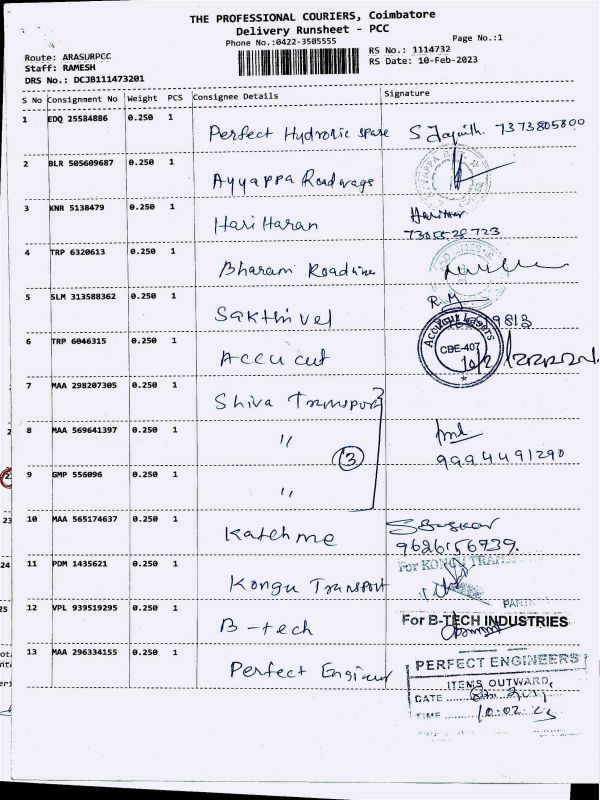 THE PROFESSIONAL COURIERS, Coimbatore
Delivery Runsheet - PCC
Phone No.:0422-3505555
Page No.:1
Route: ARASURPCC
Staff: RAMESH
DRS No.: DCJB111473201
RS No.: 1114732
RS Date: 10-Feb-2023
S No Consignment No Weight PCS Consignee Details Signature
1 EDQ 25584886 0.250 1 Perfect Hydrolic spare 7373805800
2 BLR 505609687 0.250 1 Ayyappa Roadways
3 KNR 5138479 0.250 1 Hari Haran Hariharan
7305528723
4 TRP 6320613 0.250 1 Bharani Roadlines
5 SLM 313588362 0.250 1 Sakthivel R.M
9813
6 TRP 6046315 0.250 1 Accu cut Accucut Lasers
CBE-407
10/2
7 MAA 298207305 0.250 1 Shiva Transport
8 MAA 569641397 0.250 1 "
9994491290
3
9 GMP 556096 0.250 1 "
10 MAA 565174637 0.250 1 Katehme S Baskar
9626156939.
11 PDM 1435621 0.250 1 Kongu Transport For KONGU TRANSPORT
12 VPL 939519295 0.250 1 B-tech For B-TECH INDUSTRIES
13 MAA 296334155 0.250 1 Perfect Engineer PERFECT ENGINEERS
ITEMS OUTWARD,
DATE
TIME 10.02.23
23
24
25